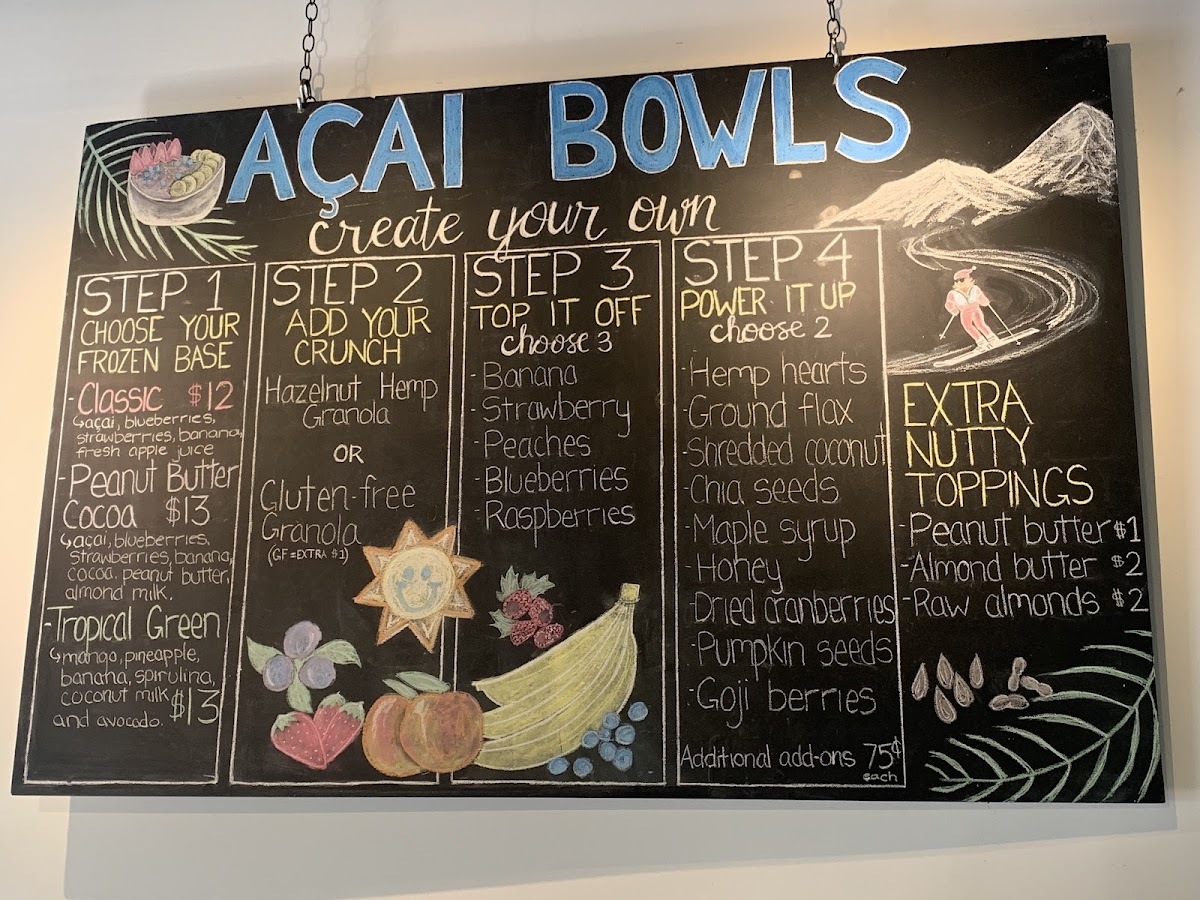 AÇAI BOWLS
create your own
STEP 1
CHOOSE YOUR
FROZEN BASE
- Classic $12
↳açai, blueberries,
strawberries, banana,
fresh apple juice
- Peanut Butter
Cocoa $13
↳açai, blueberries,
strawberries, banana,
cocoa, peanut butter,
almond milk.
- Tropical Green
↳mango, pineapple,
banana, spirulina,
coconut milk
and avocado. $13
STEP 2
ADD YOUR
CRUNCH
Hazelnut Hemp
Granola
OR
Gluten-free
Granola
(GF = EXTRA $1)
STEP 3
TOP IT OFF
choose 3
- Banana
- Strawberry
- Peaches
- Blueberries
- Raspberries
STEP 4
POWER IT UP
choose 2
- Hemp hearts
- Ground flax
- Shredded coconut
- Chia seeds
- Maple syrup
- Honey
- Dried cranberries
- Pumpkin seeds
- Goji berries
Additional add-ons 75¢
each
EXTRA
NUTTY
TOPPINGS
- Peanut butter $1
- Almond butter $2
- Raw almonds $2